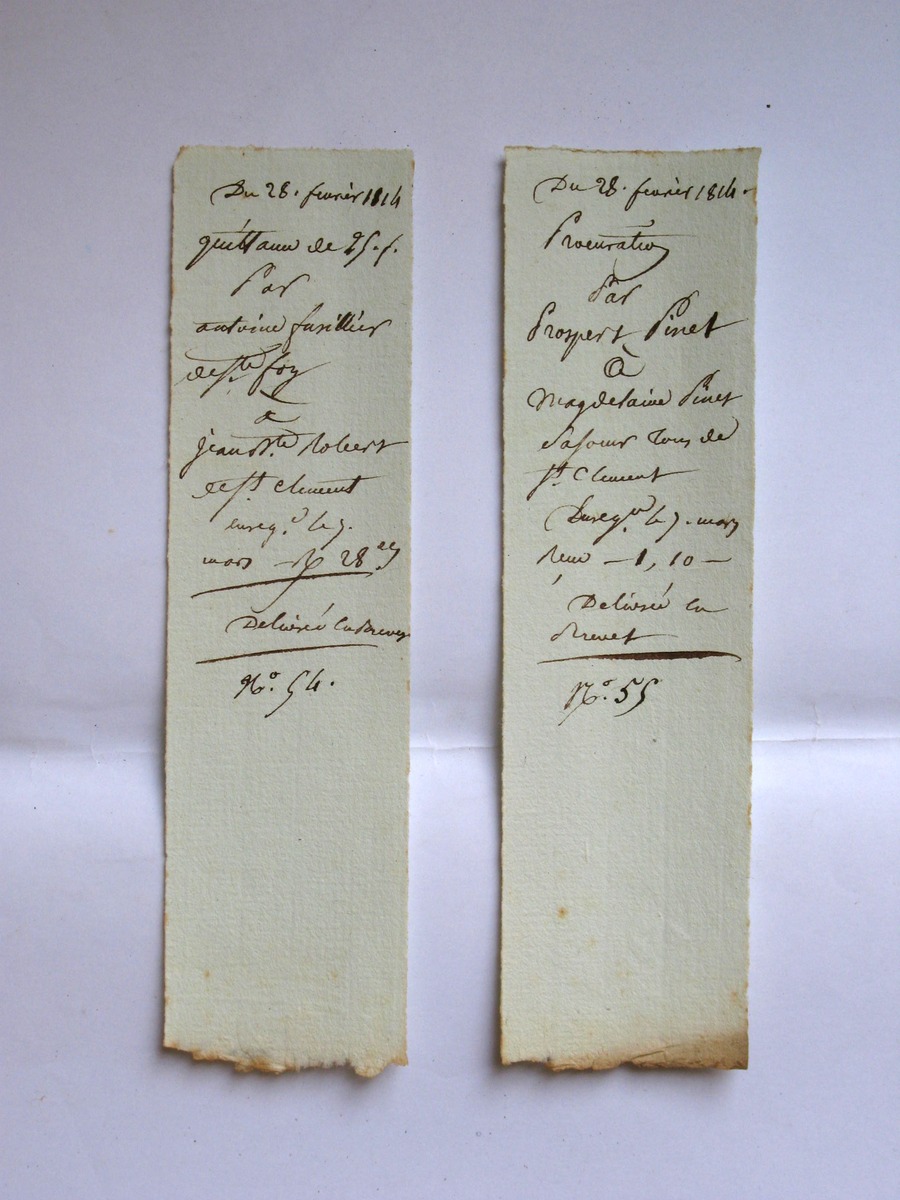 Du 28. fevrier 1814
quittance de 25. f.
Par
antoine fusillier
de Ste foy
a
jean Bte Robert
de St. Clement
enreg.é le 7.
mars 28
Delivrée en Brevet
No. 54.
Du 28. fevrier 1814.
Procuration
Par
Prospert Pinet
à
Magdelaine Pinet
Sa soeur tous de
St. Clement
Enreg.é le 7. mars
Reçu - 1, 10 -
Delivrée en
Brevet
No. 55